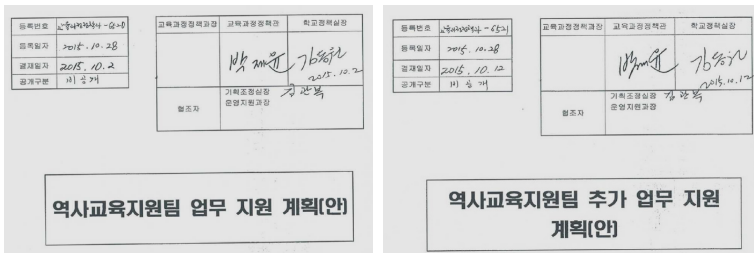 등록번호
등록일자 2015.10.28
결재일자 2015.10.2
공개구분 비공개
교육과정정책과장 교육과정정책관 학교정책실장
박제윤 김동원
2015.10.2
협조자 기획조정실장 김관복
운영지원과장
역사교육지원팀 업무 지원 계획(안)
등록번호
등록일자 2015.10.28
결재일자 2015.10.12
공개구분 비공개
교육과정정책과장 교육과정정책관 학교정책실장
박제윤 김동원
2015.10.12
협조자 기획조정실장 김관복
운영지원과장
역사교육지원팀 추가 업무 지원
계획(안)